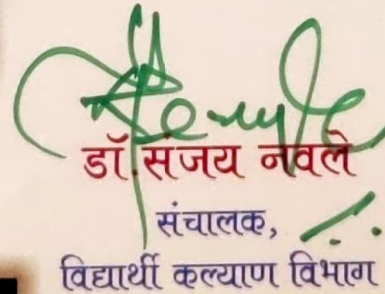 डॉ. संजय नवले
संचालक,
विद्यार्थी कल्याण विभाग